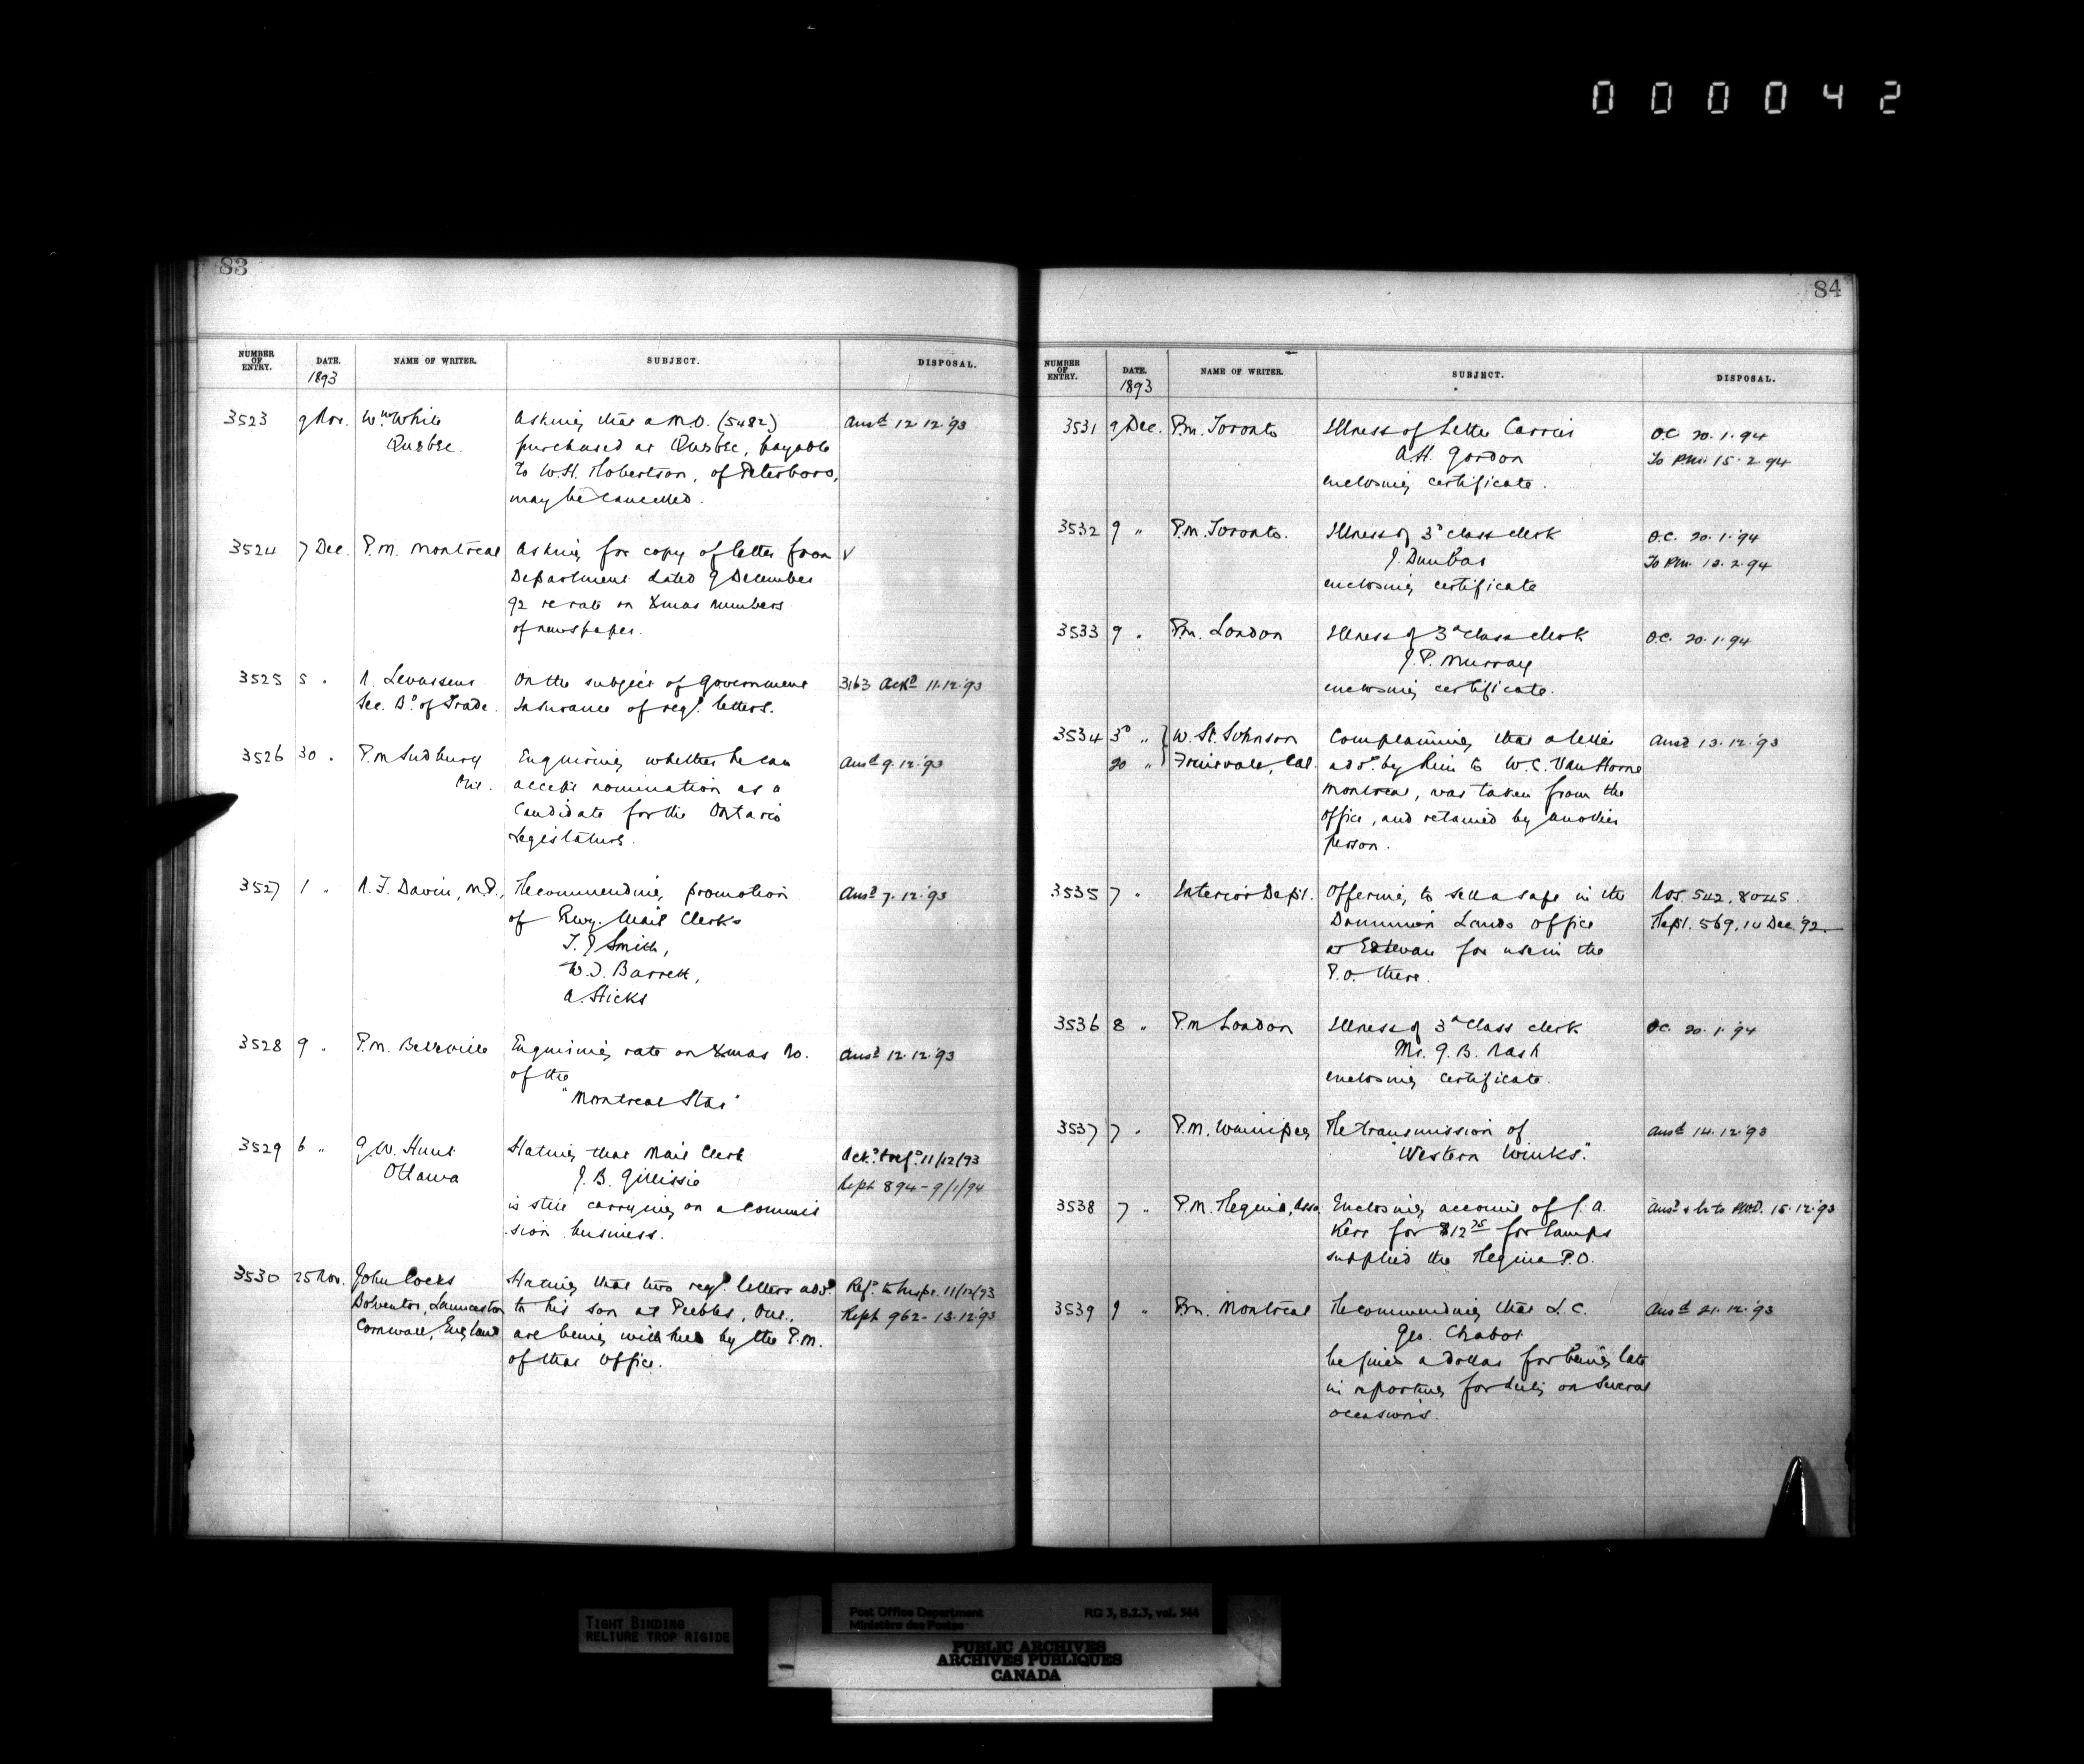 000042
83
NUMBER OF ENTRY. DATE. NAME OF WRITER. SUBJECT. DISPOSAL.
1893
3523 9 Nov. Wm White Asking that a M.O. (5482) Ansd 12.12.'93
Quebec. purchased at Quebec, payable
to W.H. Robertson, of Peterboro,
may be cancelled.
3524 7 Dec. P.M. Montreal Asking for copy of letter from √
Department dated 9 December
92 re rate on Xmas numbers
of newspaper.
3525 5 " N. Levasseur On the subject of Government 3163 Ackd 11.12.'93
Sec. Bd of Trade. Insurance of regd letters.
3526 30 " P.M. Sudbury Enquiring whether he can Ansd 9.12.'93
Ont. accept nomination as a
Candidate for the Ontario
Legislature.
3527 1 " N.F. Davin, M.P., Recommending promotion Ansd 7.12.'93
of Rwy. Mail Clerks
T.J. Smith,
W.J. Barrett,
A. Hicks
3528 9 " P.M. Belleville Enquiring rate on Xmas No. Ansd 12.12.'93
of the
"Montreal Star"
3529 6 " G.W. Hunt Stating that Mail Clerk Ackd & refd 11/12/93
Ottawa J.B. Gillissie Rept 894 - 9/1/94
is still carrying on a commis
sion business.
3530 25 Nov. John Cocks Stating that two regd letters addd Refd to Inspr. 11/12/93
Bolventor, Launceston to his son at Peebles, Ont., Rept 962 - 13.12.'93
Cornwall, England are being withheld by the P.M.
of that Office.
84
NUMBER OF ENTRY. DATE. NAME OF WRITER. SUBJECT. DISPOSAL.
1893
3531 9 Dec. P.M. Toronto Illness of Letter Carrier O.C. 20.1.94
A.H. Gordon To P.M. 15.2.94
enclosing certificate.
3532 9 " P.M. Toronto. Illness of 3d class clerk O.C. 20.1.'94
J. Dunbar To P.M. 12.2.94
enclosing certificate
3533 9 " P.M. London Illness of 3d class clerk O.C. 20.1.'94
J.P. Murray
enclosing certificate.
3534 30 " W. St. Johnson Complaining that a letter Ansd 13.12.'93
20 " Fruitvale, Cal. addd by him to W.C. Van Horne
Montreal, was taken from the
office, and retained by another
person.
3535 7 " Interior Dept. Offering to sell a safe in the 542, 8045.
Dominion Lands Office Rept. 569, 14 Dec. '92
at Estevan for use in the
P.O. there.
3536 8 " P.M. London Illness of 3d Class clerk O.C. 20.1.'94
Mr. G.B. Nash
enclosing certificate.
3537 7 " P.M. Winnipeg Re transmission of Ansd 14.12.'93
"Western Winks."
3538 7 " P.M. Regina, Assa. Enclosing account of J.A. Ansd & to P.W.D. 15.12.'93
Kerr for $12 75 for lamps
supplied the Regina P.O.
3539 9 " P.M. Montreal Recommending that L.C. Ansd 21.12.'93
Geo. Chabot
be fined a dollar for being late
in reporting for duty on several
occasions.
TIGHT BINDING
RELIURE TROP RIGIDE
Post Office Department RG 3, B.2.3, vol. 544
Ministère des Postes
PUBLIC ARCHIVES
ARCHIVES PUBLIQUES
CANADA